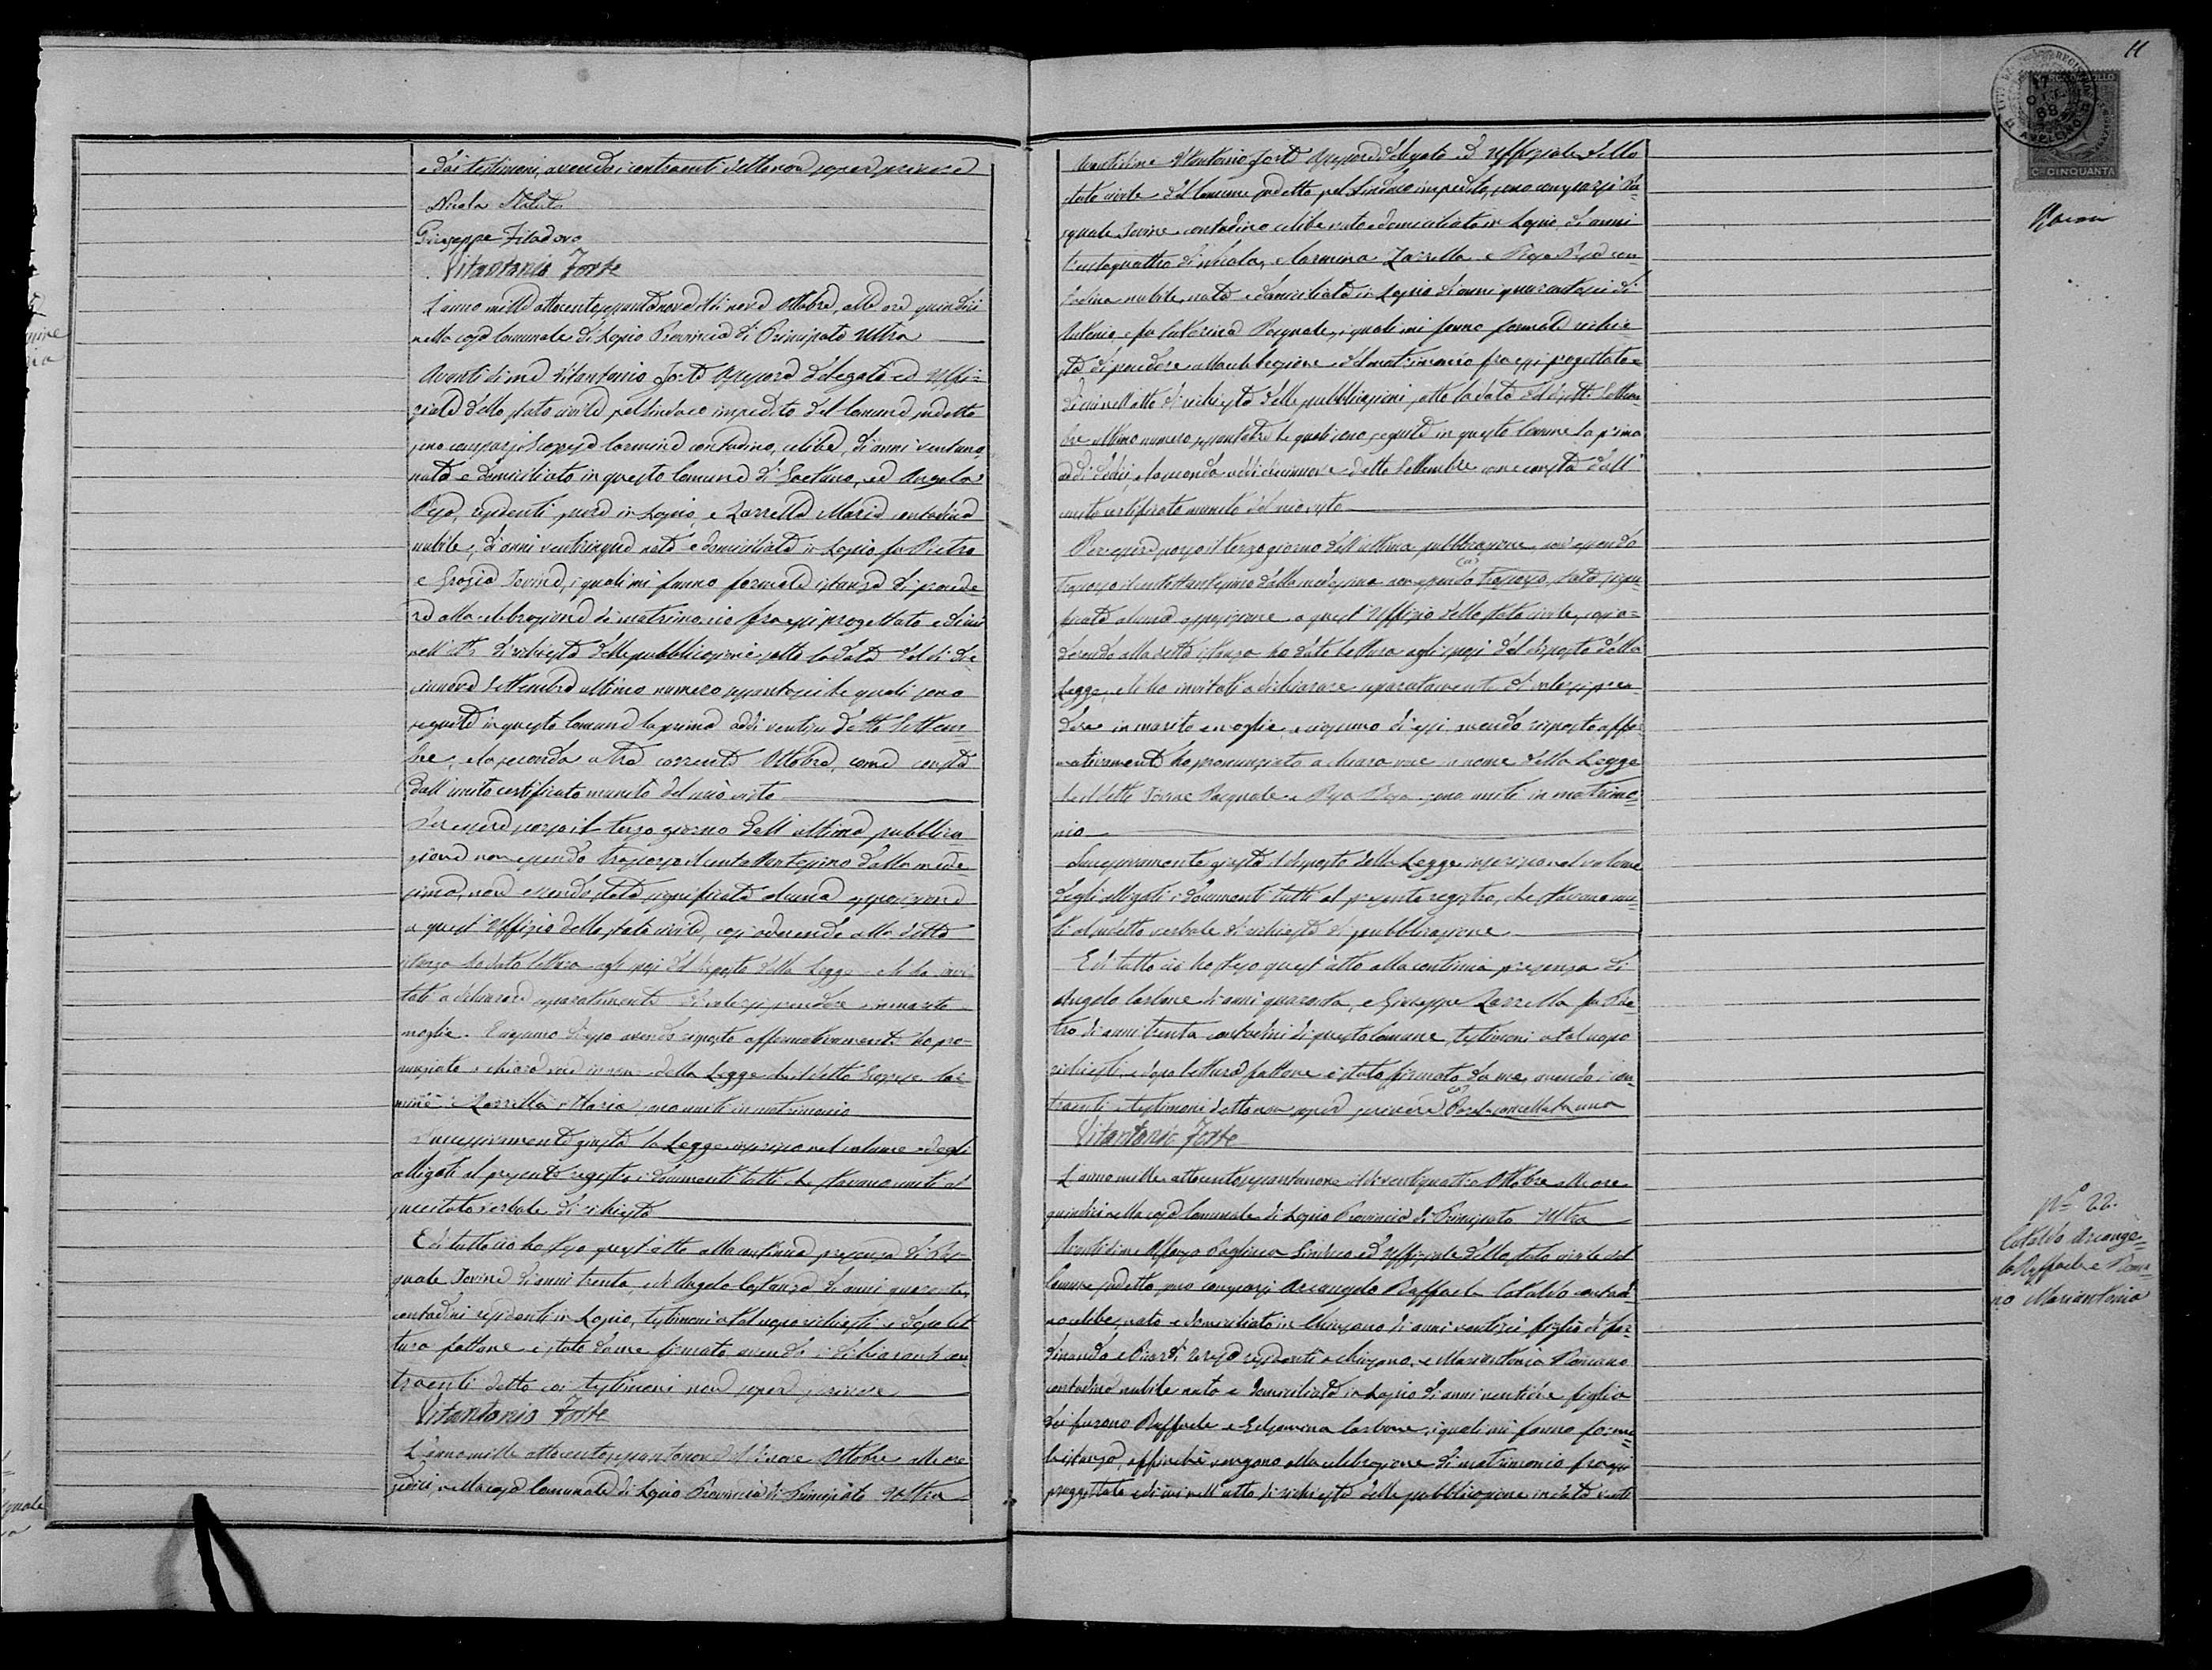 e dai testimoni, avendo i contraenti detto non sapere scrivere
Nicola
Giuseppe
Vitantonio Forte
L'anno mille ottocentosessantanove il dì nove Ottobre, alle ore quindici
nella casa Comunale di Lapio Provincia di Principato Ultra
Avanti di me Vitantonio Forte Assessore delegato ed Uffi=
ziale dello stato civile pel Sindaco impedito del Comune suddetto
sono comparsi Scopesa Carmine contadino, celibe, di anni ventuno,
nato e domiciliato in questo Comune di Gaetano, ed Angela
Pepe, residenti pure in Lapio, e Zarrella Maria contadina
nubile, di anni venticinque nata e domiciliata in Lapio fu Pietro
e Grazia Iovine, i quali mi fanno formale istanza di procede=
re alla celebrazione di matrimonio fra essi progettato e di cui
nell'atto di richiesta delle pubblicazioni sotto la data del dì di
ciannove Settembre ultimo numero le quali sono
seguite in questo Comune la prima addì ventisei detto Settem=
bre, e la seconda a tre corrente Ottobre, come consta
dall'unito certificato munito del mio visto
Per essere scorso il terzo giorno dell'ultima pubblica
zione non essendo trascorso il centottantesimo dalla mede
sima, non essendo stata significata alcuna opposizione
a quest'Uffizio dello stato civile, così aderendo alla detta
istanza ho dato lettura agli sposi del disposto della Legge e li ho invi
tati a dichiarare separatamente di volersi prendere in marito e
moglie. E ognuno di essi avendo risposto affermativamente ho pro=
nunziato a chiara voce in nome della Legge che il detto Scopesa Car
mine e Zarrella Maria sono uniti in matrimonio
Successivamente giusta la Legge inseriso nel volume degli
alligati al presente registro i documenti tutti che stavano uniti al
precitato verbale di richiesta
E di tutto ciò ho steso quest'atto alla continua presenza di Pas=
quale Iovine di anni trenta, e di Angelo Costanzo di anni quaranta,
contadini residenti in Lapio, testimoni a tal uopo richiesti e dopo let
tura fattane è stato da me firmato avendo i dichiaranti con
traenti detto coi testimoni non sapere scrivere
Vitantonio Forte
L'anno mille ottocentosessantanove il dì nove Ottobre alle ore
sedici, nella casa Comunale di Lapio Provincia di Principato Ultra
11
MARCA DA BOLLO
Ci CINQUANTA
Avanti di me Vitantonio Forte Assessore delegato ed Uffiziale dello
stato civile del Comune suddetto pel Sindaco impedito, sono comparsi Pa=
squale Iovine contadino celibe nato e domiciliato in Lapio, di anni
trentaquattro di Nicola, e Carmina Zarrella e Pepe Rosa con=
tadina nubile, nata e domiciliata in Lapio di anni quarantasei di
Antonio, e fu Caterina Pasquale, i quali mi fanno formale richie
sta di procedere alla celebrazione del matrimonio fra essi progettato e
di cui nell'atto di richiesta delle pubblicazioni sotto la data del dì sette Settem=
bre ultimo numero le quali sono seguite in questo Comune la prima
addì dodici, e la seconda addì diciannove detto Settembre come consta dall'
unito certificato munito del mio visto
Per essere scorso il terzo giorno dell'ultima pubblicazione, non essendo
trascorso il centottantesimo dalla medesima non essendo trascorso, stata signi=
ficata alcuna opposizione a quest'Uffizio dello stato civile, così a=
derendo alla detta istanza ho dato lettura agli sposi del disposto della
Legge, e li ho invitati a dichiarare separatamente di volersi pren=
dere in marito e moglie, e ognuno di essi avendo risposto affer=
mativamente ho pronunziato a chiara voce in nome della Legge
che il detto Iovine Pasquale e Pepe Rosa sono uniti in matrimo=
nio
Successivamente giusta il disposto della Legge inseriso nel volume
degli alligati i documenti tutti al presente registro, che stavano uni=
ti al suddetto verbale di richiesta di pubblicazione
E di tutto ciò ho steso quest'atto alla continua presenza di
Angelo Carbone di anni quaranta, e Giuseppe Zarrella fu Pie
tro di anni trenta contadini di questo Comune, testimoni a tal uopo
richiesti, e dopo lettura fattane è stato firmato da me, avendo i con=
traenti e testimoni detto non sapere scrivere Parola cancellata una
Vitantonio Forte
L'anno mille ottocentosessantanove il dì ventiquattro Ottobre alle ore
quindici nella casa Comunale di Lapio Provincia di Principato Ultra
Avanti di me Sindaco ed Uffiziale dello stato civile del
Comune suddetto sono comparsi Arcangelo Raffaele Cataldo contadi=
no celibe, nato e domiciliato in Chiusano di anni ventisei figlio di Fer=
dinando e residenti a Chiusano, e Mariantonia Romano
contadina nubile nata e domiciliata in Lapio di anni ventitre figlia
dei furono Raffaele e Gelsomina Carbone, i quali mi fanno forma=
le istanza, affinché vengano alla celebrazione di matrimonio fra essi
progettato e di cui nell'atto di richiesta delle pubblicazione in data venti
No 22.
Cataldo Arcange=
lo Raffaele e Roma=
no Mariantonia